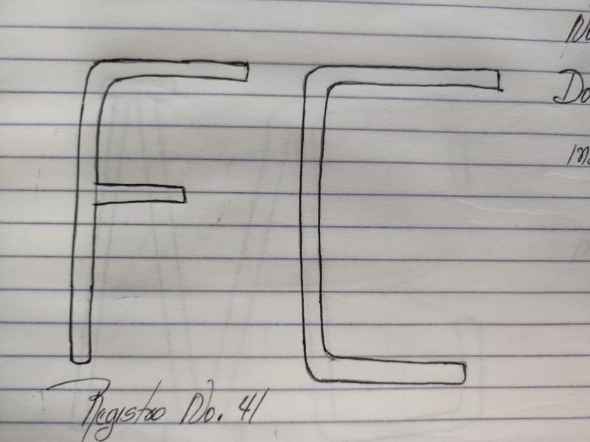 FC
Registro No. 41
No
Do